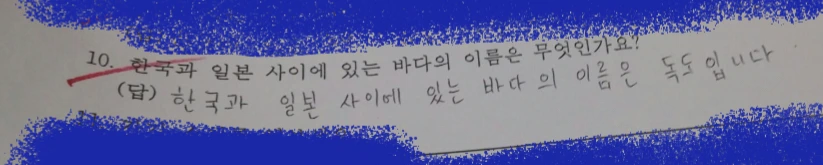 10. 한국과 일본 사이에 있는 바다의 이름은 무엇인가요?
(답) 한국과 일본 사이에 있는 바다의 이름은 독도입니다